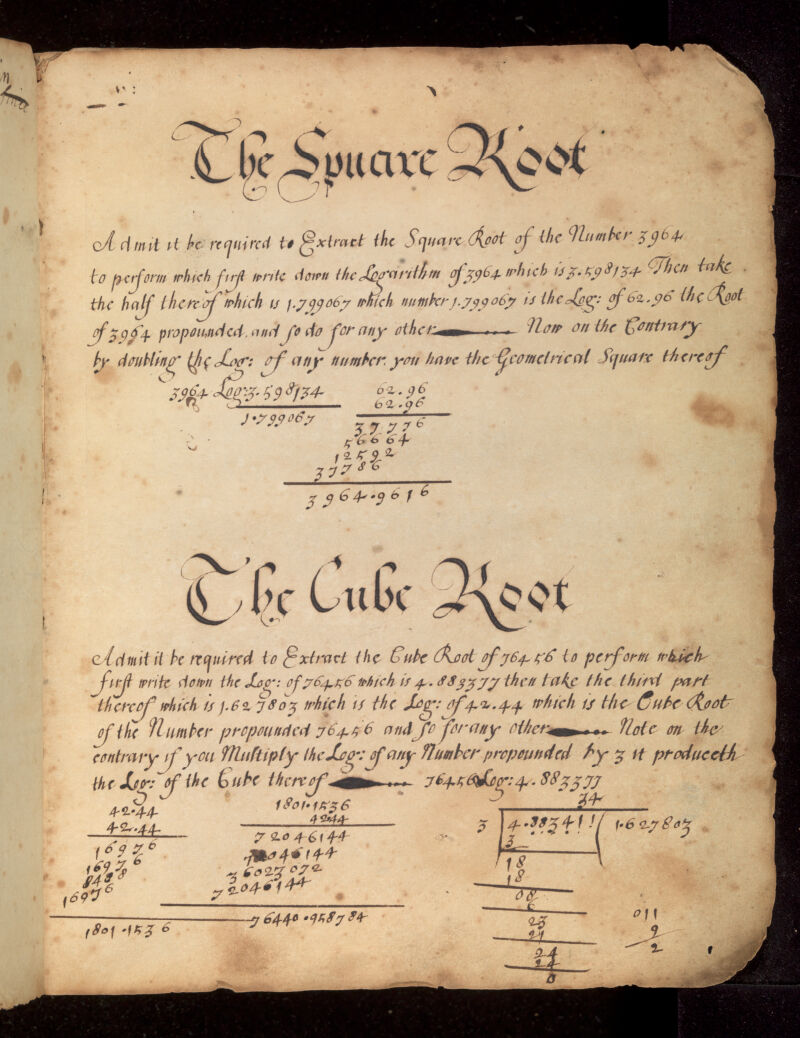 The Square Root
Admit it be required to Extract the Square Root of the Number 3964
to perform which first write down the Logarithm of 3964 which is 3.598134 Then take
the half thereof which is 1.799067 which number 1.799067 is the Log: of 62.96 the Root
of 3964 propounded, and so do for any other Now on the Contrary
by doubling the Log: of any number, you have the Geometrical Square thereof
3964 Log: 3.598134 62.96
62.96
1.799067
37776
56664
12592
37786
3964.9616
The Cube Root
Admit it be required to Extract the Cube Root of 76456 to perform which
first write down the Log: of 76456 which is 4.883377 then take the third part
thereof which is 1.627803 which is the Log: of 42.44 which is the Cube Root
of the Number propounded 76456 and so for any other Note on the
contrary if you Multiply the Log: of any Number propounded by 3 it produceth
the Log: of the Cube thereof 76456 Log: 4.883377
42.44
42.44
16976
16976
8488
16976
1801.1536
1801.1536
4244
72046144
72046144
36023072
72046144
76440.958784
34
3 4.88341!!( 1.627803
3
18
18
08
6
23
21
24
24
0
011
9
2